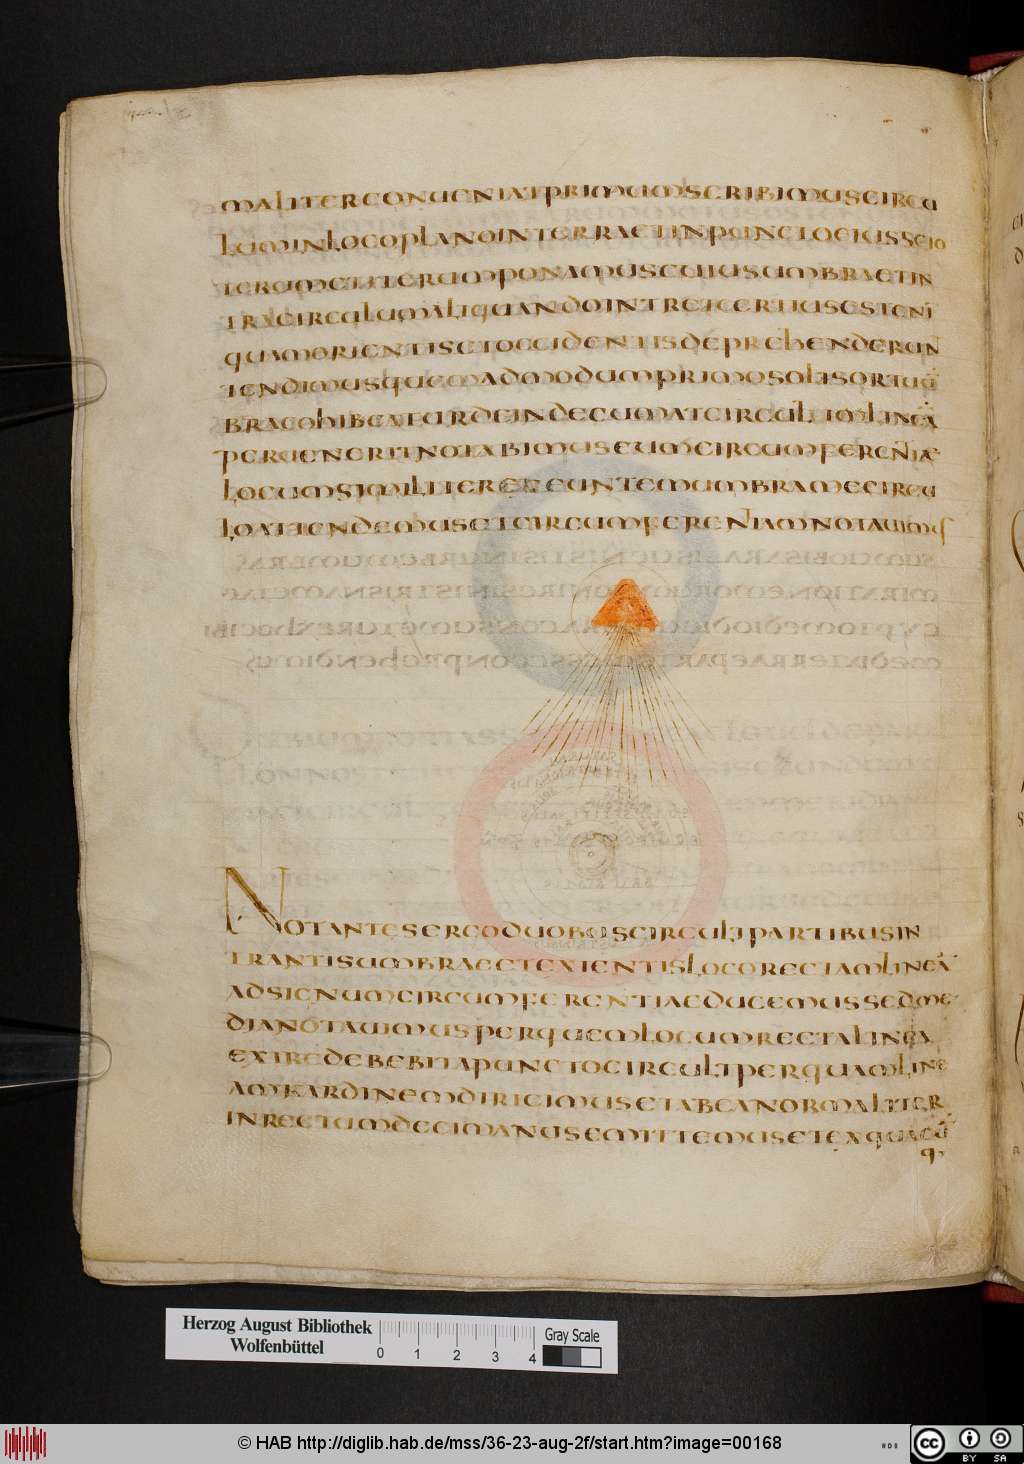 MALITERCONUENIATPRIMUMSCRIBIMUSCIRCU
LUMINLOCOPLANOINTERRAETINPUNCTOEIUSSCIO
TERUMETITERUMPONAMUSCUIUSUMBRAETIN
TRACIRCULUMALIQUANDOINTRETCERTIUSESTENI
QUAMORIENTISETOCCIDENTISDEPREHENDERUN
TENDIMUSQUEMADMODUMPRIMOSOLISORTUŪ
BRACOHIBEATURDEINDECUMATCIRCULIMLINEĀ
PERUENERITNOTABIMUSEUMCIRCUMFERENTIAE
LOCUMSIMILITEREXEUNTEMUMBRAMECIRCU
LOATTENDEMUSETCIRCUMFERENTIAMNOTAUIMUS
NOTANTESERGODUOBUSCIRCULIPARTIBUSIN
TRANTISUMBRAEETEXIENTISLOCORECTAMLINEĀ
ADSIGNUMCIRCUMFERENTIAEDUCEMUSSEDME
DIANOTAUIMUSPERQUEMLOCUMRECTALINEA
EXIREDEBEBITAPUNCTOCIRCULIPERQUAMLINE
AMKARDINEMDIRIGIMUSETABEANORMALITER
INRECTUMDECIMANUSEMITTEMUSETEXQUACŪ
q.
Herzog August Bibliothek
Wolfenbüttel
0 1 2 3 4
Gray Scale
© HAB http://diglib.hab.de/mss/36-23-aug-2f/start.htm?image=00168
cc BY SA